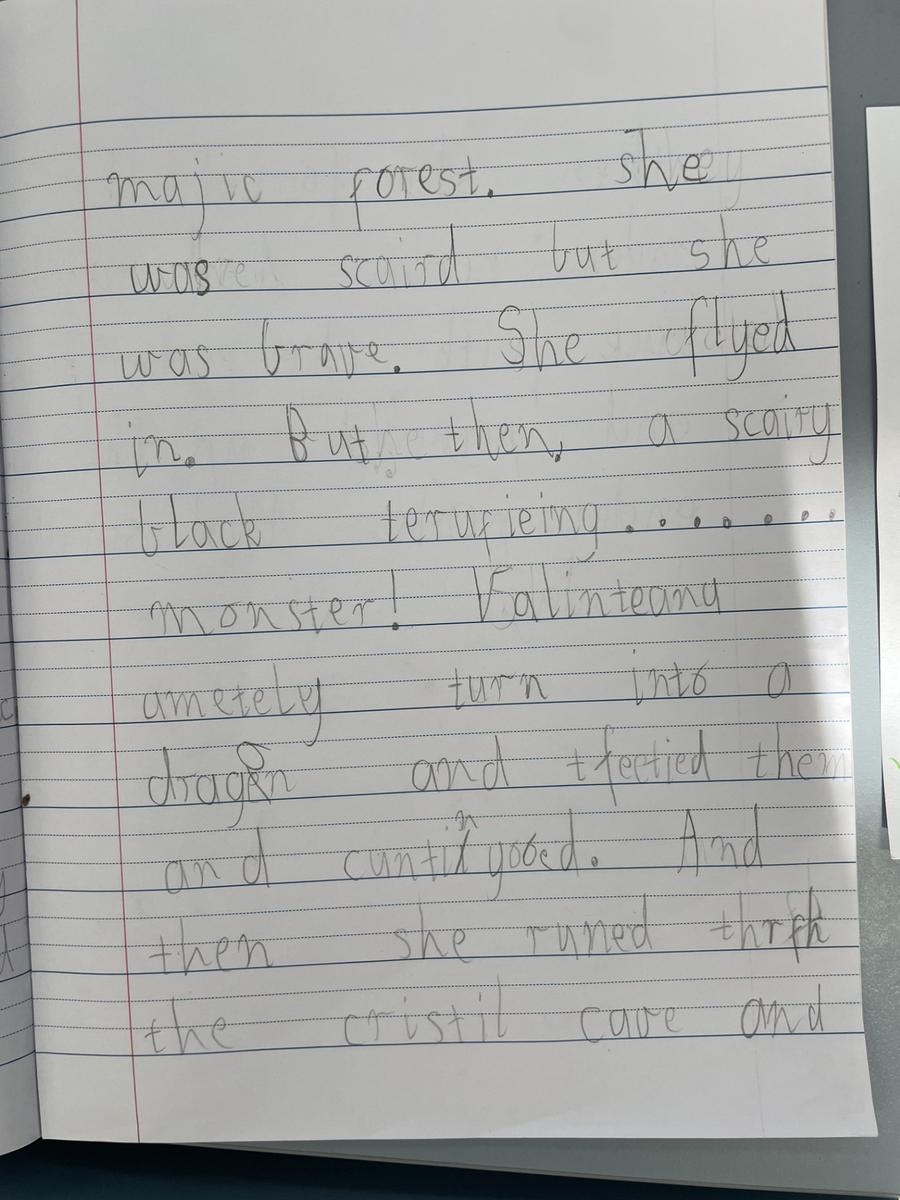 majic forest. she
was scaird but she
was brave. She flyed
in. But then, a scairy
black terufieing........
monster! Valinteana
ametely turn into a
dragon and tfeetied them
and cuntingooed. And
then she runed thrfh
the cristil cave and